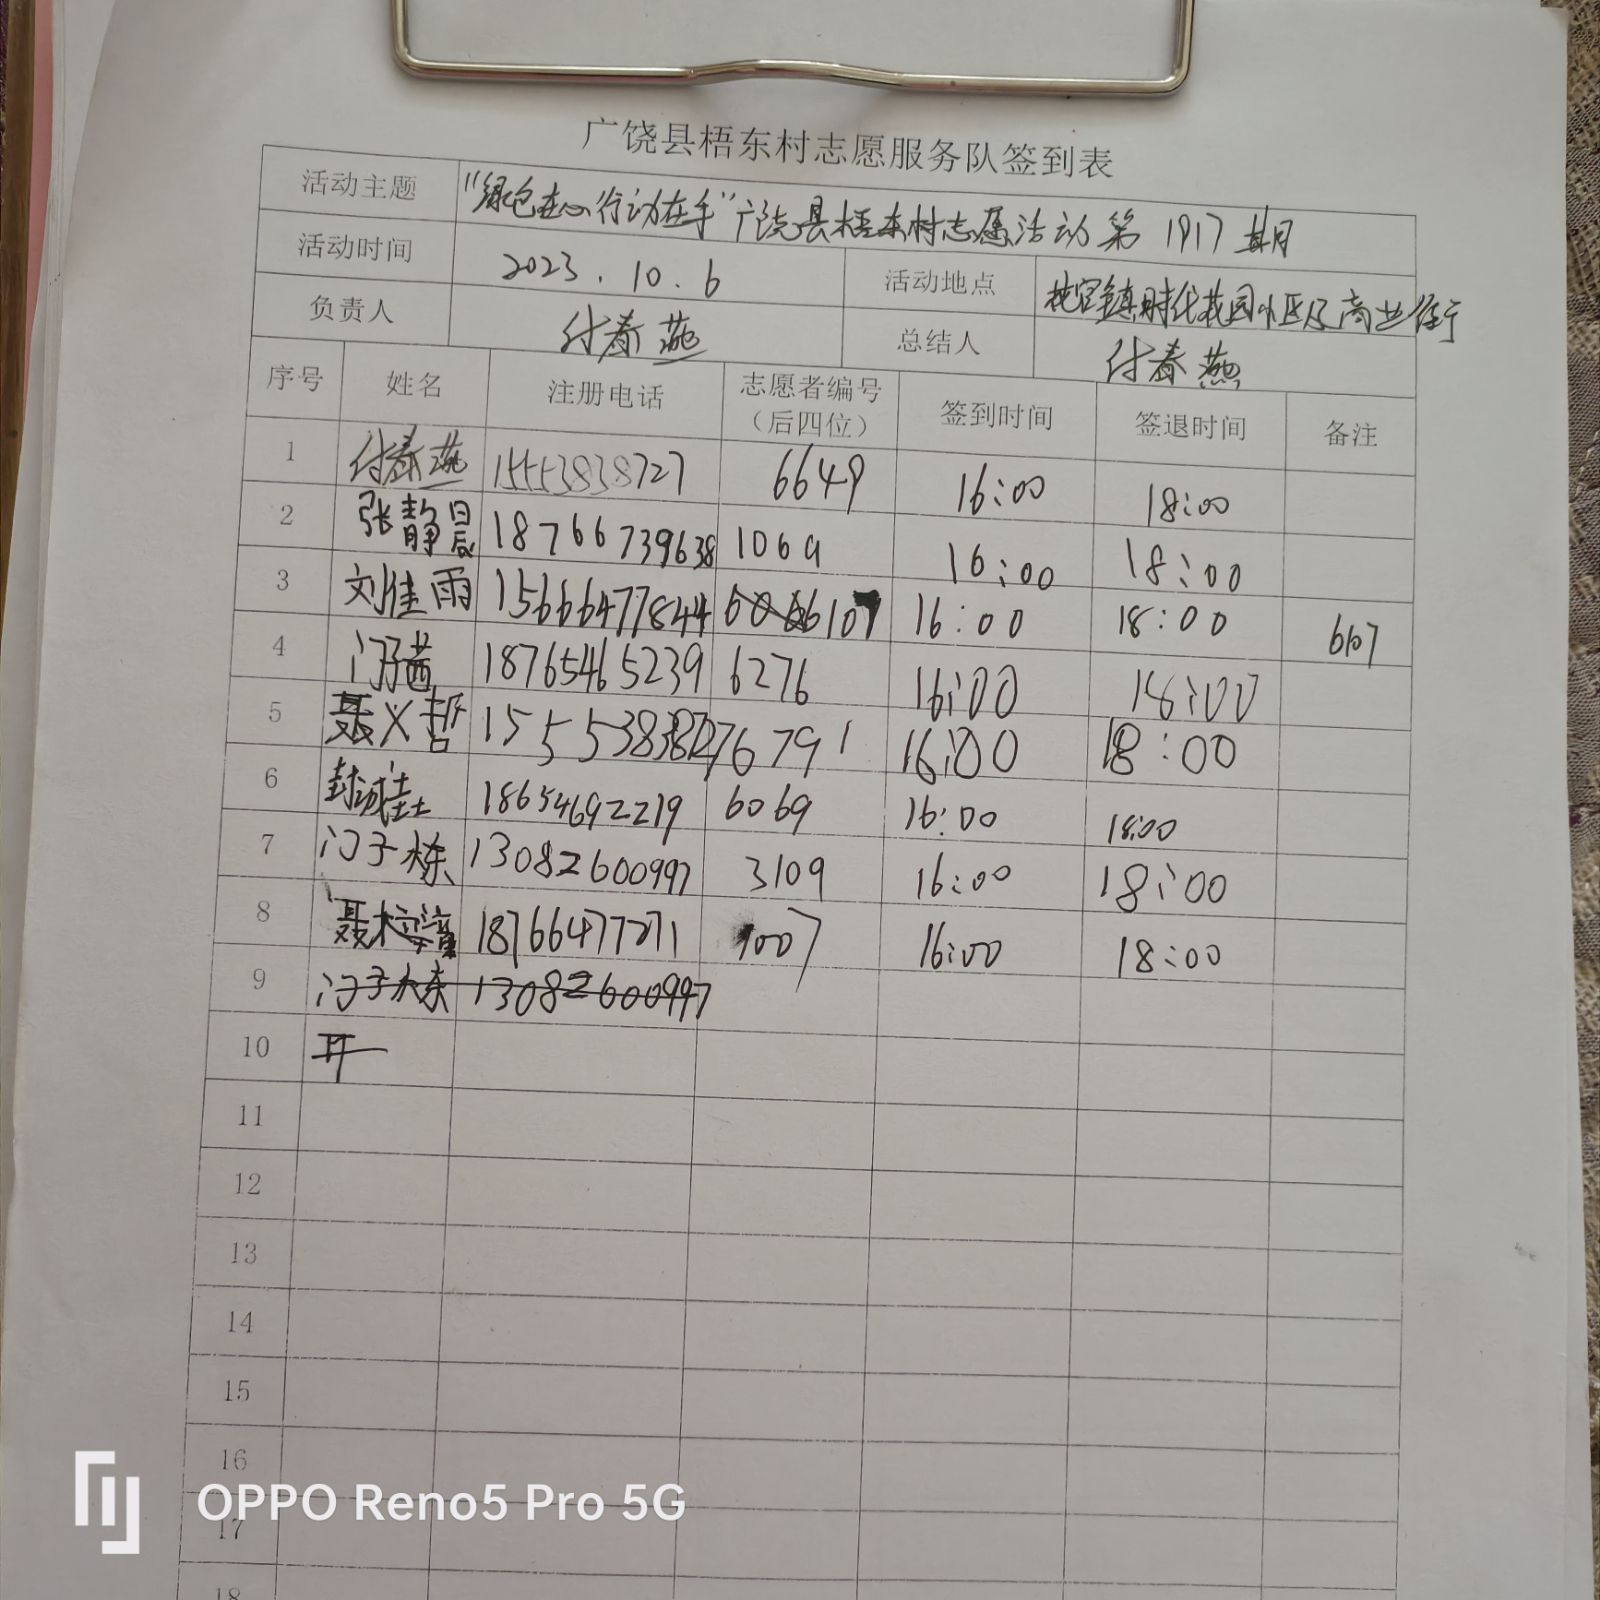 广饶县梧东村志愿服务队签到表
活动主题 "绿色在心 行动在手"广饶县梧东村志愿活动第 1917 期
活动时间 2023.10.6 活动地点 桃官镇时代花园小区及商业街
负责人 付春燕 总结人 付春燕
序号 姓名 注册电话 志愿者编号（后四位） 签到时间 签退时间 备注
1 付春燕 15553838727 6649 16:00 18:00
2 张静晨 18766739638 1069 16:00 18:00
3 刘佳雨 15666477844 6107 16:00 18:00 6107
4 门子茜 18765465239 6276 16:00 18:00
5 聂义哲 15553838727 6791 16:00 18:00
6 封城 18654692219 6069 16:00 18:00
7 门子栋 13082600997 3109 16:00 18:00
8 聂 18766477271 1007 16:00 18:00
9 门子栋 13082600997
10
11
12
13
14
15
16
17
18
OPPO Reno5 Pro 5G